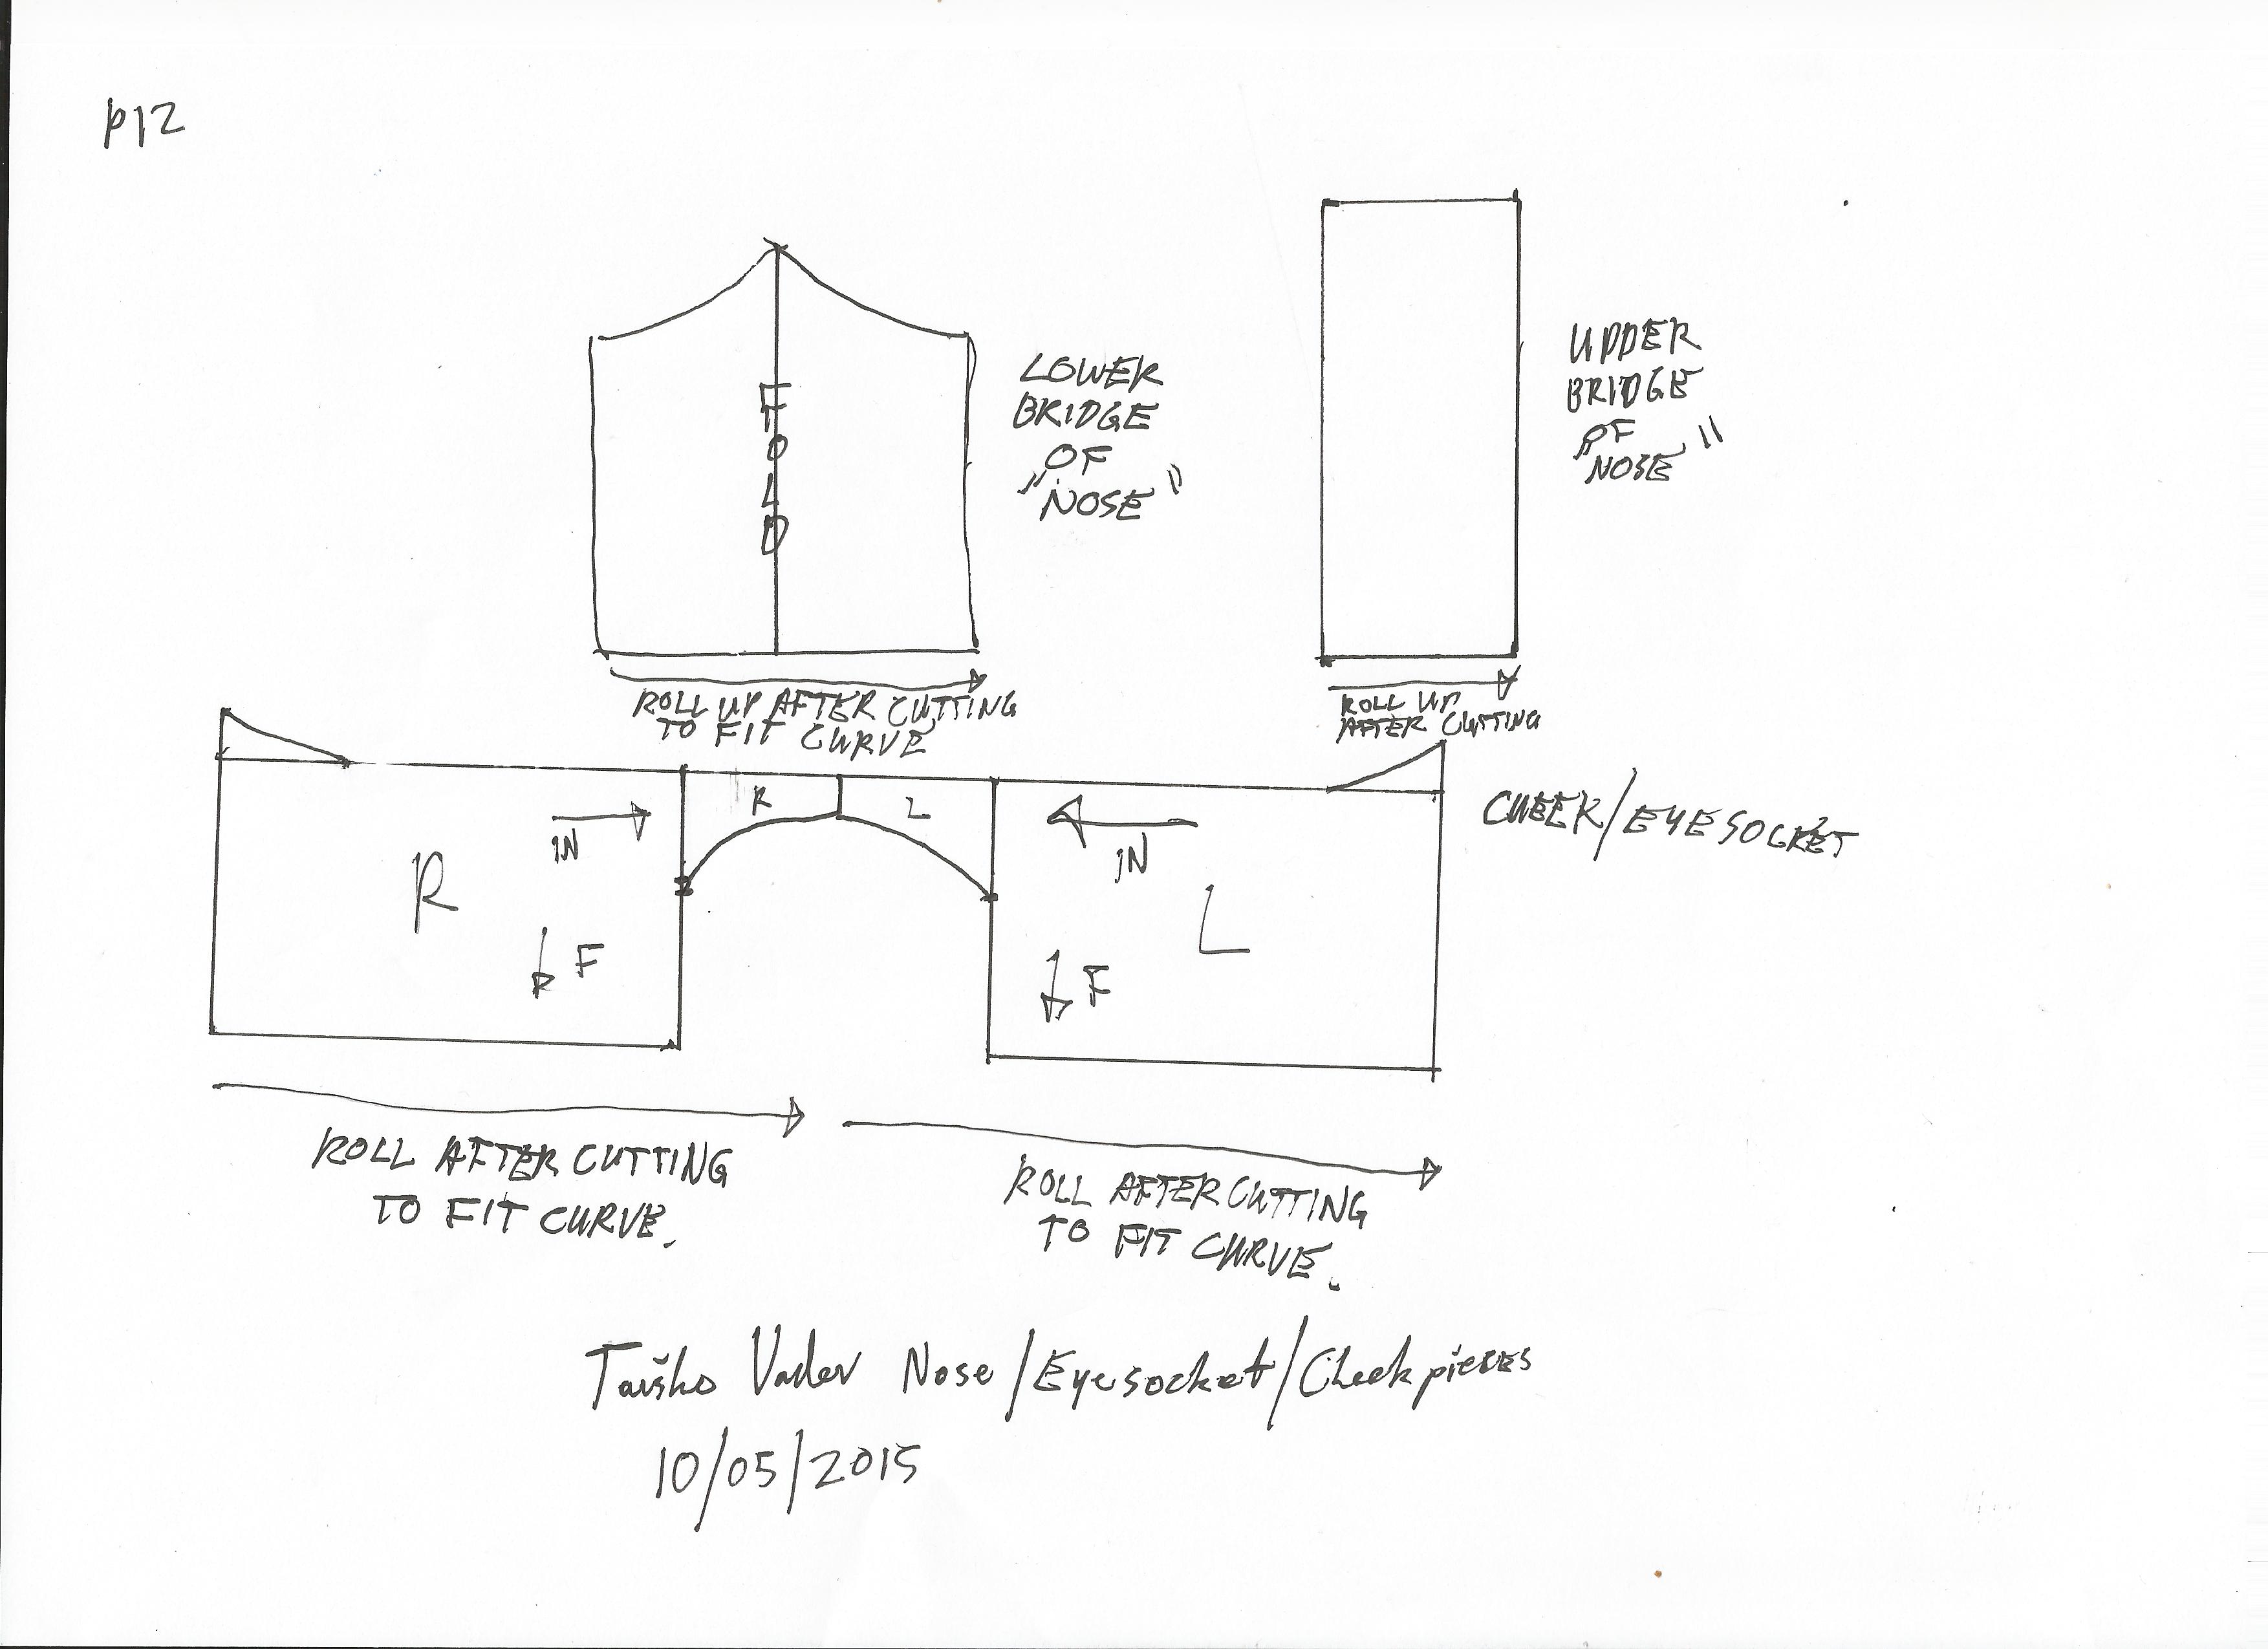 p12
LOWER
BRIDGE
OF
"NOSE"
UPPER
BRIDGE
OF
"NOSE"
FOLD
ROLL UP AFTER CUTTING
TO FIT CURVE
ROLL UP
AFTER CUTTING
R
L
IN
IN
CHEEK/EYESOCKET
R
L
F
F
ROLL AFTER CUTTING
TO FIT CURVE.
ROLL AFTER CUTTING
TO FIT CURVE.
Taisho Vader Nose/Eyesocket/Cheek pieces
10/05/2015